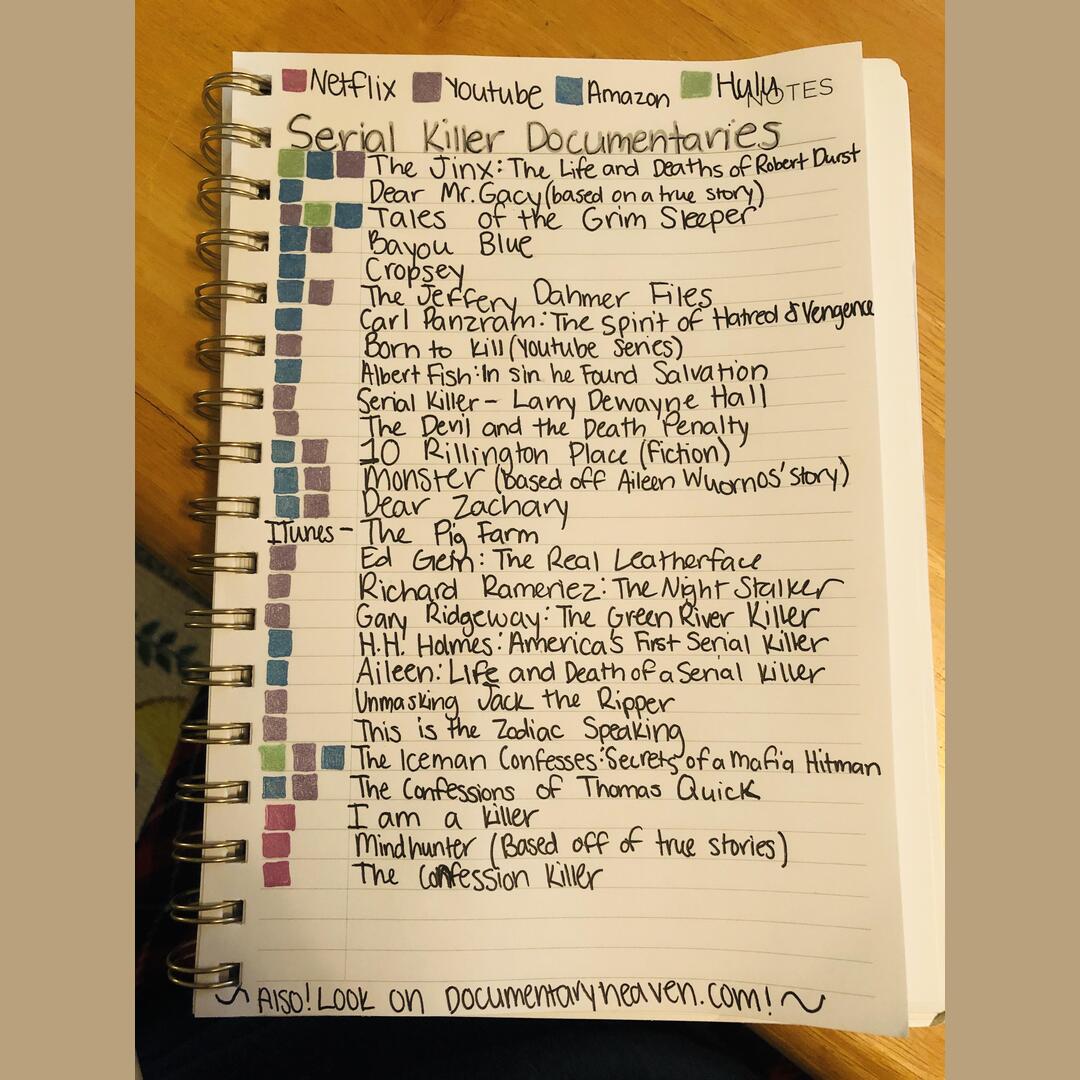 Netflix Youtube Amazon Hulu NOTES
Serial Killer Documentaries
The Jinx: The Life and Deaths of Robert Durst
Dear Mr. Gacy (based on a true story)
Tales of the Grim Sleeper
Bayou Blue
Cropsey
The Jeffery Dahmer Files
Carl Panzram: The Spirit of Hatred & Vengence
Born to Kill (Youtube Series)
Albert Fish: In Sin he Found Salvation
Serial Killer - Larry Dewayne Hall
The Devil and the Death Penalty
10 Rillington Place (Fiction)
Monster (Based off Aileen Wuornos' story)
Dear Zachary
ITunes - The Pig Farm
Ed Gein: The Real Leatherface
Richard Rameriez: The Night Stalker
Gary Ridgeway: The Green River Killer
H.H. Holmes: America's First Serial Killer
Aileen: Life and Death of a Serial Killer
Unmasking Jack the Ripper
This is the Zodiac Speaking
The Iceman Confesses: Secrets of a Mafia Hitman
The Confessions of Thomas Quick
I am a Killer
Mindhunter (Based off of true stories)
The Confession Killer
~ Also! Look on Documentaryheaven.com! ~